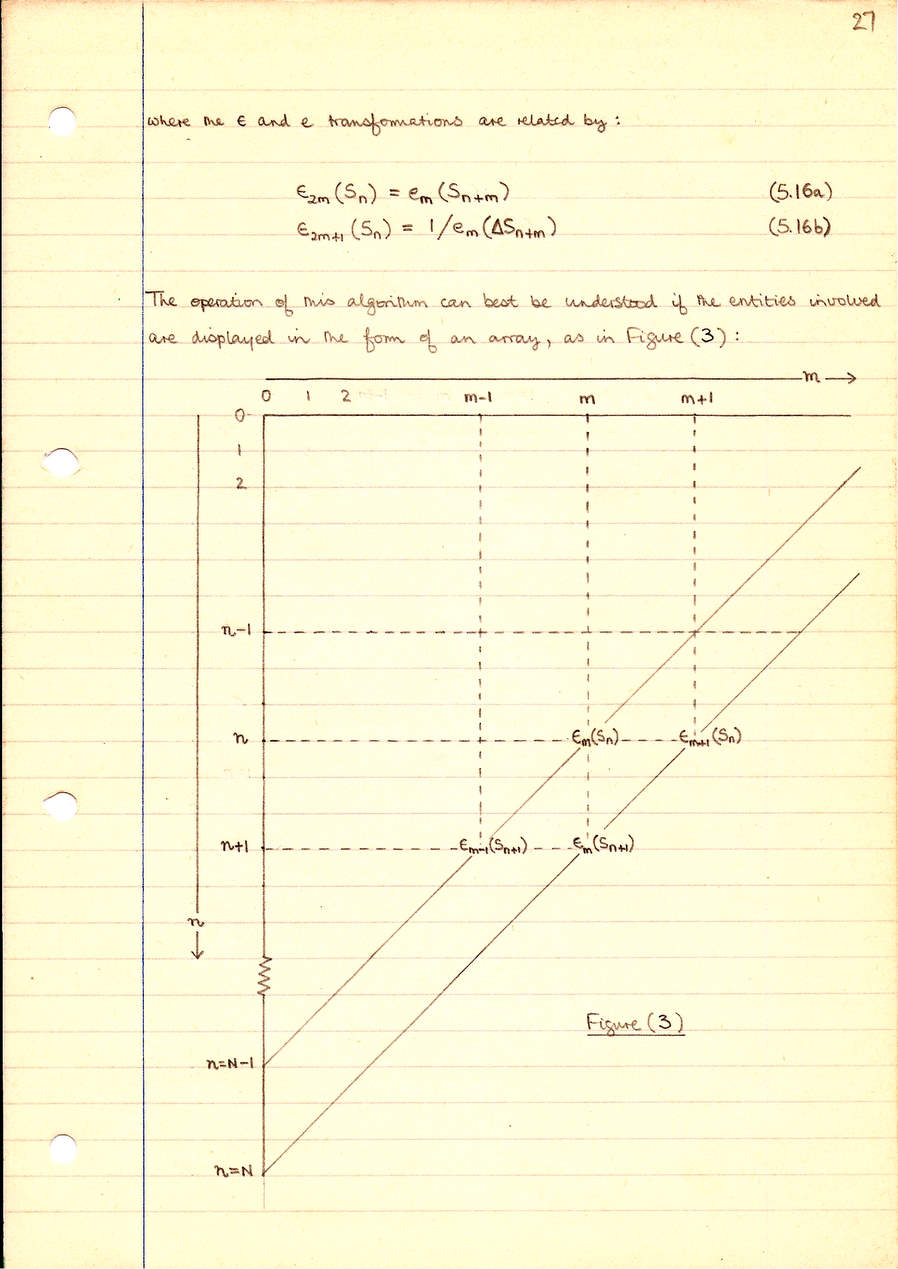 27
where the ϵ and e transformations are related by :
ϵ₂ₘ(Sₙ) = eₘ(Sₙ₊ₘ) (5.16a)
ϵ₂ₘ₊₁(Sₙ) = 1/eₘ(ΔSₙ₊ₘ) (5.16b)
The operation of this algorithm can best be understood if the entities involved
are displayed in the form of an array, as in Figure (3) :
m
0 1 2 m-1 m m+1
0
1
2
n-1
n ϵₘ(Sₙ) ϵₘ₊₁(Sₙ)
n+1 ϵₘ₋₁(Sₙ₊₁) ϵₘ(Sₙ₊₁)
n
Figure (3)
n=N-1
n=N